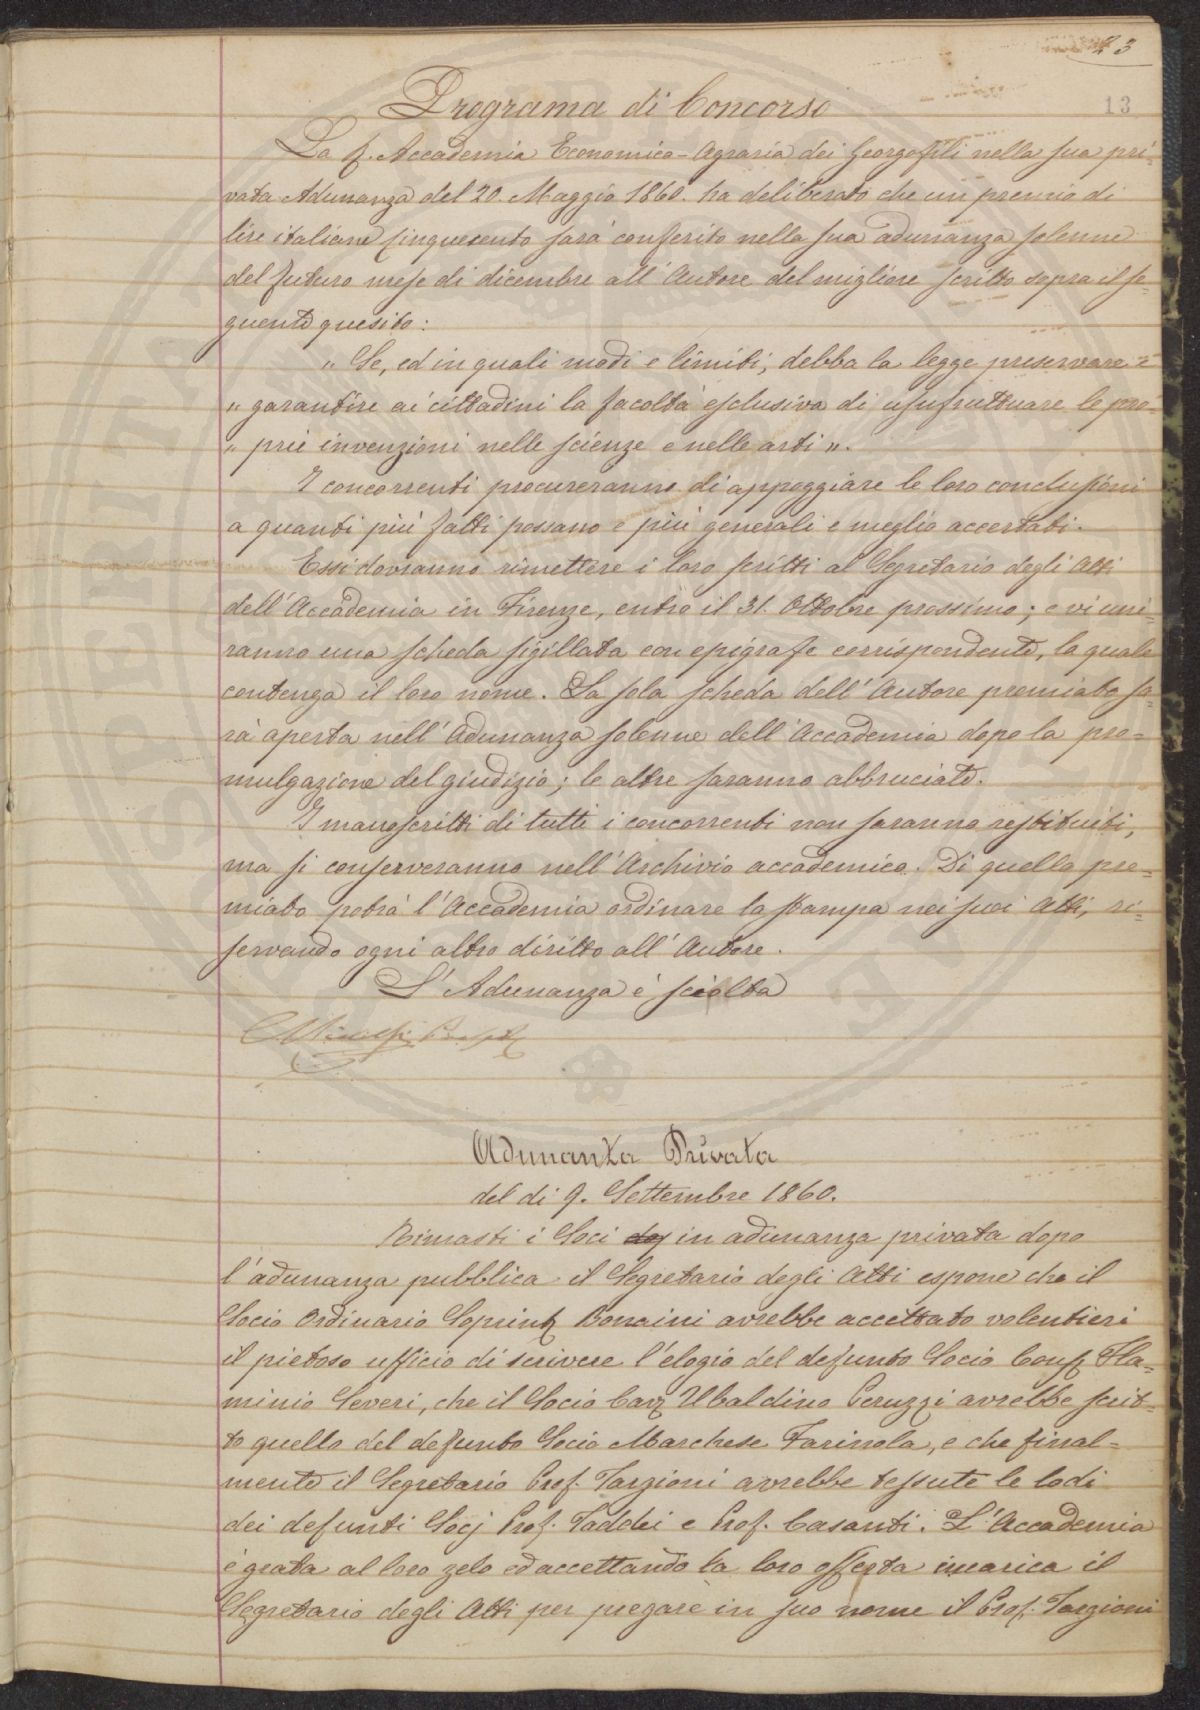 23
13
Programa di Concorso
La R. Accademia Economico-Agraria dei Georgofili nella sua pri-
vata Adunanza del 20. Maggio 1860. ha deliberato che un premio di
lire italiane cinquecento sarà conferito nella sua adunanza solenne
del futuro mese di dicembre all'Autore del migliore scritto sopra il se-
guente quesito:
" Se, ed in quali modi e limiti, debba la legge preservare e
" garantire ai cittadini la facoltà esclusiva di usufruttuare le pro-
" prie invenzioni nelle scienze e nelle arti ".
I concorrenti procureranno di appoggiare le loro conclusioni
a quanti più fatti possano e più generali e meglio accertati.
Essi dovranno rimettere i loro scritti al Segretario degli Atti
dell'Accademia in Firenze, entro il 31. Ottobre prossimo; e vi uni-
ranno una scheda sigillata con epigrafe corrispondente, la quale
contenga il loro nome. La sola scheda dell'Autore premiato sa-
rà aperta nell'Adunanza solenne dell'Accademia dopo la pro-
mulgazione del giudizio; le altre saranno abbruciate.
I manoscritti di tutti i concorrenti non saranno restituiti,
ma si conserveranno nell'Archivio accademico. Di quello pre-
miato potrà l'Accademia ordinare la stampa nei suoi Atti, ri-
servando ogni altro diritto all'Autore.
L'Adunanza è sciolta
Adunanza Privata
del dì 9. Settembre 1860.
Rimasti i Soci in adunanza privata dopo
l'adunanza pubblica il Segretario degli Atti espone che il
Socio Ordinario Soprint Bonaini avrebbe accettato volentieri
il pietoso ufficio di scrivere l'elogio del defunto Socio Cons Fla-
minio Severi, che il Socio Cav Ubaldino Peruzzi avrebbe scrit-
to quello del defunto Socio Marchese Farinola, e che final-
mente il Segretario Prof. Targioni avrebbe tessute le lodi
dei defunti Socj Prof. Taddei e Prof. Casanti. L'Accademia
è grata al loro zelo ed accettando la loro offerta incarica il
Segretario degli Atti per pregare in suo nome il Prof. Targioni